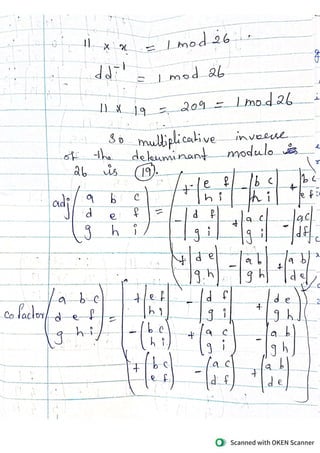 11 × x = 1 mod 26
dd⁻¹ = 1 mod 26
11 × 19 = 209 = 1 mod 26
So multiplicative inverse
of the determinant modulo
26 is (19).
adj (a b c / d e f / g h i) = (+|e f / h i| -|b c / h i| +|b c / e f|
-|d f / g i| +|a c / g i| -|a c / d f|
+|d e / g h| -|a b / g h| +|a b / d e|)
cofactor (a b c / d e f / g h i) = (+|e f / h i| -|d f / g i| +|d e / g h|
-|b c / h i| +|a c / g i| -|a b / g h|
+|b c / e f| -|a c / d f| +|a b / d e|)
Scanned with OKEN Scanner